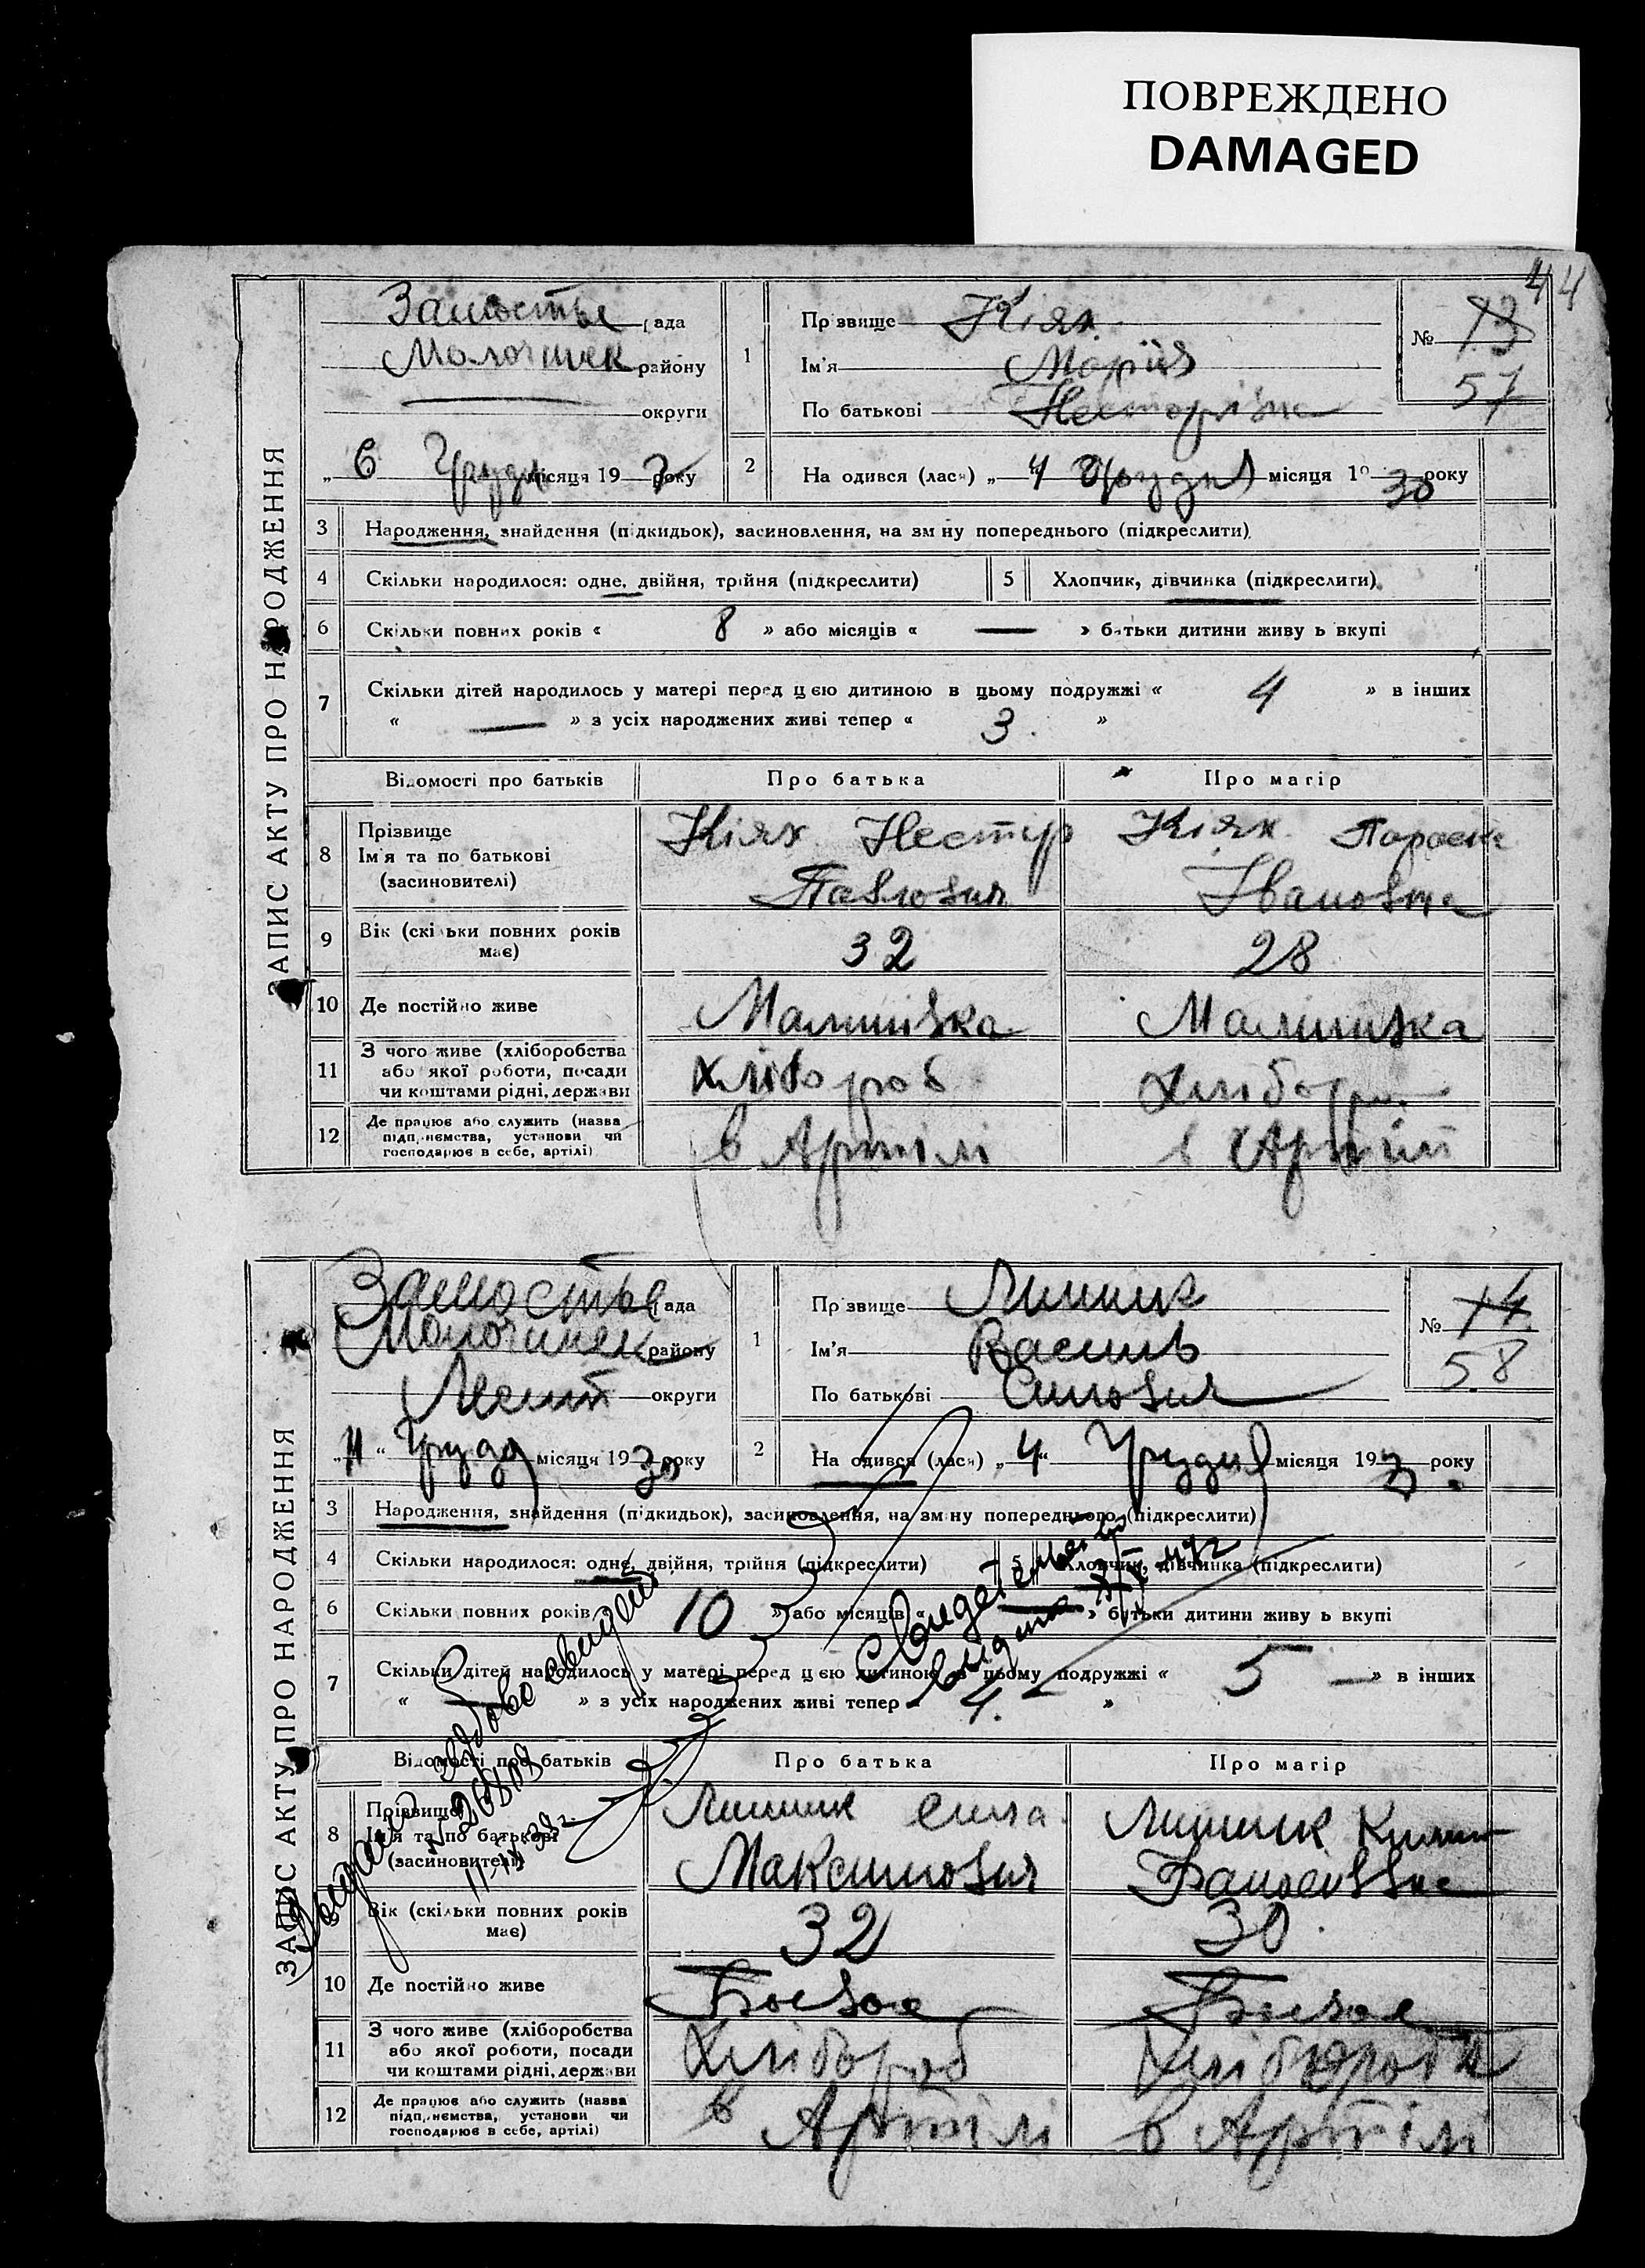 ПОВРЕЖДЕНО
DAMAGED
44
ЗАПИС АКТУ ПРО НАРОДЖЕННЯ
Замостье рада
району
округи
1
Прізвище Кіях
Ім'я Марія
По батькові Несторівна
№ 13
57
„ 6 Грудн місяця 193 року
2
На одився (лася) „ 4 Грудня місяця 19 30 року
3 Народження, знайдення (підкидьок), засиновлення, на зміну попереднього (підкреслити)
4 Скільки народилося: одне, двійня, трійня (підкреслити)
5 Хлопчик, дівчинка (підкреслити)
6 Скільки повних років « 8 » або місяців « — » батьки дитини живуть вкупі
7 Скільки дітей народилось у матері перед цією дитиною в цьому подружжі « 4 » в інших
« — » з усіх народжених живі тепер « 3 »
Відомості про батьків Про батька Про матір
8 Прізвище
Ім'я та по батькові
(засиновителі)
Кіях Нестір
Павлович
Кіях Параска
Івановна
9 Вік (скільки повних років
має)
32 28
10 Де постійно живе Малинівка Малинівка
11 З чого живе (хліборобства
або якої роботи, посади
чи коштами рідні, держави
хлібороб
12 Де працює або служить (назва
підприємства, установи чи
господарює в себе, артілі)
в Артілі в Артілі
ЗАПИС АКТУ ПРО НАРОДЖЕННЯ
Замостье рада
району
округи
1
Прізвище
Ім'я Василь
По батькові
№ 14
58
„ 11 “ Грудня місяця 19 30 року
2
На одився (лася) „ 4 “ Грудня місяця 193 року
3 Народження, знайдення (підкидьок), засиновлення, на зміну попереднього (підкреслити)
4 Скільки народилося: одне, двійня, трійня (підкреслити)
5 Хлопчик, дівчинка (підкреслити)
6 Скільки повних років « 10 » або місяців « — » батьки дитини живуть вкупі
7 Скільки дітей народилось у матері перед цією дитиною в цьому подружжі « 5 — » в інших
« — » з усіх народжених живі тепер « 4. »
Відомості про батьків Про батька Про матір
8 Прізвище
Ім'я та по батькові
(засиновителі)
Максимович
9 Вік (скільки повних років
має)
32 30
10 Де постійно живе
11 З чого живе (хліборобства
або якої роботи, посади
чи коштами рідні, держави
Хлібороб Хліборобка
12 Де працює або служить (назва
підприємства, установи чи
господарює в себе, артілі)
в Артілі в Артілі